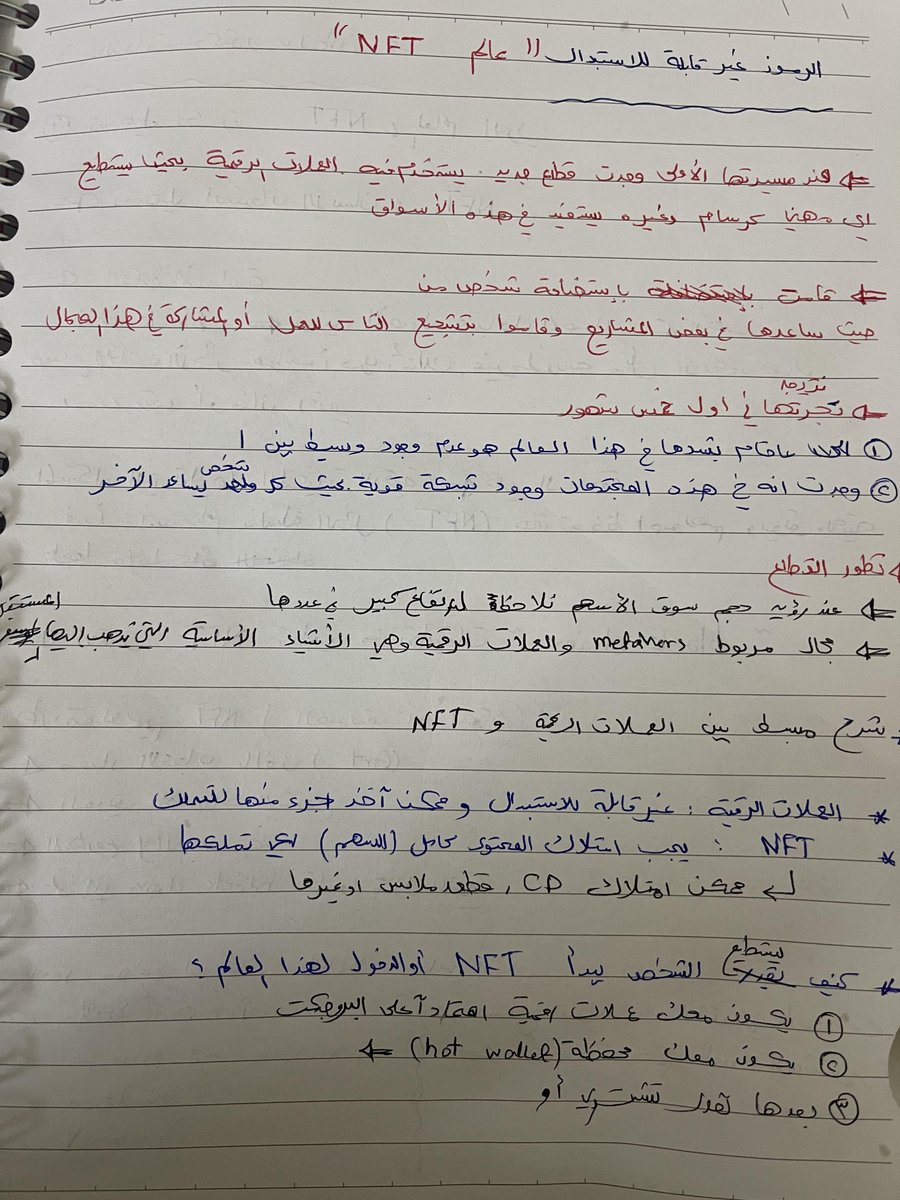 الرموز غير قابلة للاستبدال "عالم NFT"
⇐ منذ مسيرتها الأولى وجدت قطاع جديد. يستخدم فيه العملات الرقمية بحيث يستطيع
اي مهني كرسام وغيره يستفيد في هذه الأسواق
⇐ قامت بإستضافة شخص من
حيث ساعدها في بعض المشاريع وقاموا بتشجيع الناس للعمل أو المشاركة في هذا المجال
⇐ تجربتها في اول خمس شهور
① ماقام بشدها في هذا العالم هو عدم وجود وسيط بين ا
② وجدت انه في هذه المجتمعات وجود شبكة قوية بحيث كل شخص يساعد الآخر
تطور القطاع
⇐ عند رؤية حجم سوق الأسهم نلاحظ ارتفاع كبير في عددها
⇐ مجال مربوط metavers والعملات الرقمية وهي الأشياء الأساسية التي يذهب إليها المستقبل
* شرح مبسط بين العملات الرقمية و NFT
* العملات الرقمية : غير قابلة للاستبدال و ممكن آخذ جزء منها للتملك
* NFT : يجب امتلاك المحتوى كامل (للسهم) لكي تملكها
ممكن امتلاك CD , قطعة ملابس اوغيرها
* كيف يستطع الشخص يبدأ NFT أو الدخول لهذا العالم ؟
① يكون معك عملات رقمية اعتماداً على البروجكت
② يكون معك محفظة (hot wallet) ⇐
③ بعدها تقدر تشتري أو